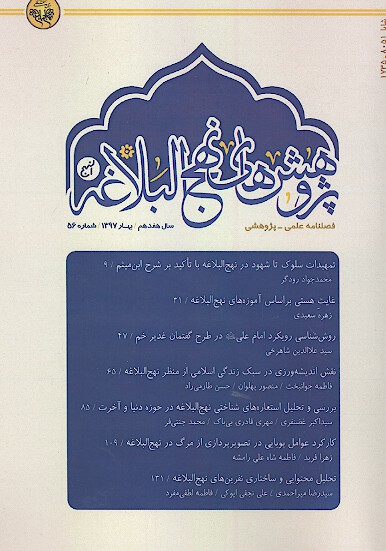 شاپا ۸۰۵۱-۱۷۳۵
پژوهش‌های نهج البلاغه
فصلنامه علمی - پژوهشی
سال هفدهم / بهار ۱۳۹۷ / شماره ۵۶
تمهیدات سلوک تا شهود در نهج‌البلاغه با تأکید بر شرح ابن‌میثم / ۹
محمدجواد رودگر
غایت هستی براساس آموزه‌های نهج‌البلاغه / ۳۱
زهره سعیدی
روش‌شناسی رویکرد امام علی در طرح گفتمان غدیر خم / ۴۷
سید علاالدین شاهرخی
نقش اندیشه‌ورزی در سبک زندگی اسلامی از منظر نهج‌البلاغه / ۶۵
فاطمه جوانبخت / منصور پهلوان / حسن طارمی‌راد
بررسی و تحلیل استعاره‌های شناختی نهج‌البلاغه در حوزه دنیا و آخرت / ۸۵
سیداکبر غضنفری / مهری قادری بی‌باک / محمد جنتی‌فر
کارکرد عوامل پویایی در تصویرپردازی از مرگ در نهج‌البلاغه / ۱۰۹
زهرا فرید / فاطمه شاه علی رامشه
تحلیل محتوایی و ساختاری نفرین‌های نهج‌البلاغه / ۱۳۱
سیدرضا میراحمدی / علی نجفی ایوکی / فاطمه لطفی‌مفرد